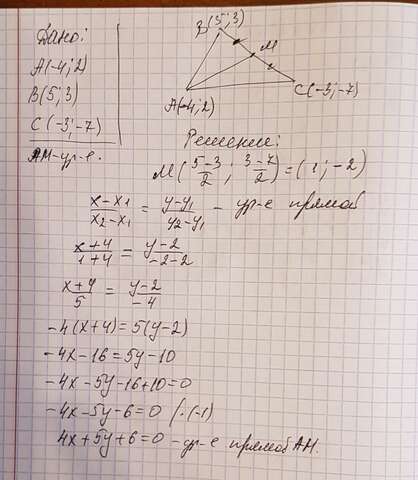 Дано:
A(-4; 2)
B(5; 3)
C(-3; -7)
AM-ур-е.
B(5; 3)
M
A(-4; 2)
C(-3; -7)
Решение:
M(5-3/2; 3-7/2) = (1; -2)
x-x1/x2-x1 = y-y1/y2-y1 - ур-е прямой
x+4/1+4 = y-2/-2-2
x+4/5 = y-2/-4
-4(x+4)=5(y-2)
-4x-16=5y-10
-4x-5y-16+10=0
-4x-5y-6=0 /·(-1)
4x+5y+6=0 - ур-е прямой AM.